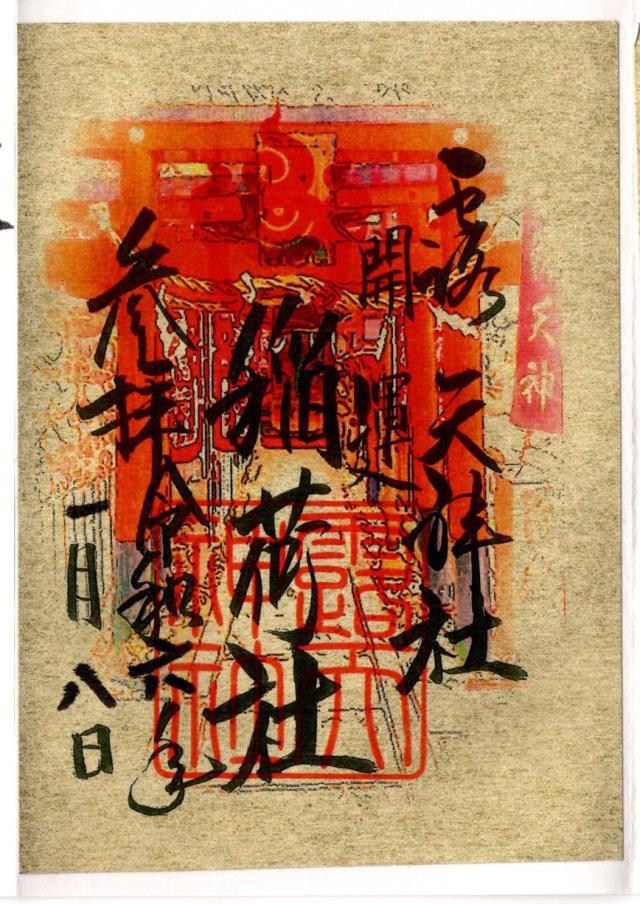 露天神社
開運
稲荷社
参拝令和六年
一月八日
天神
露天神社